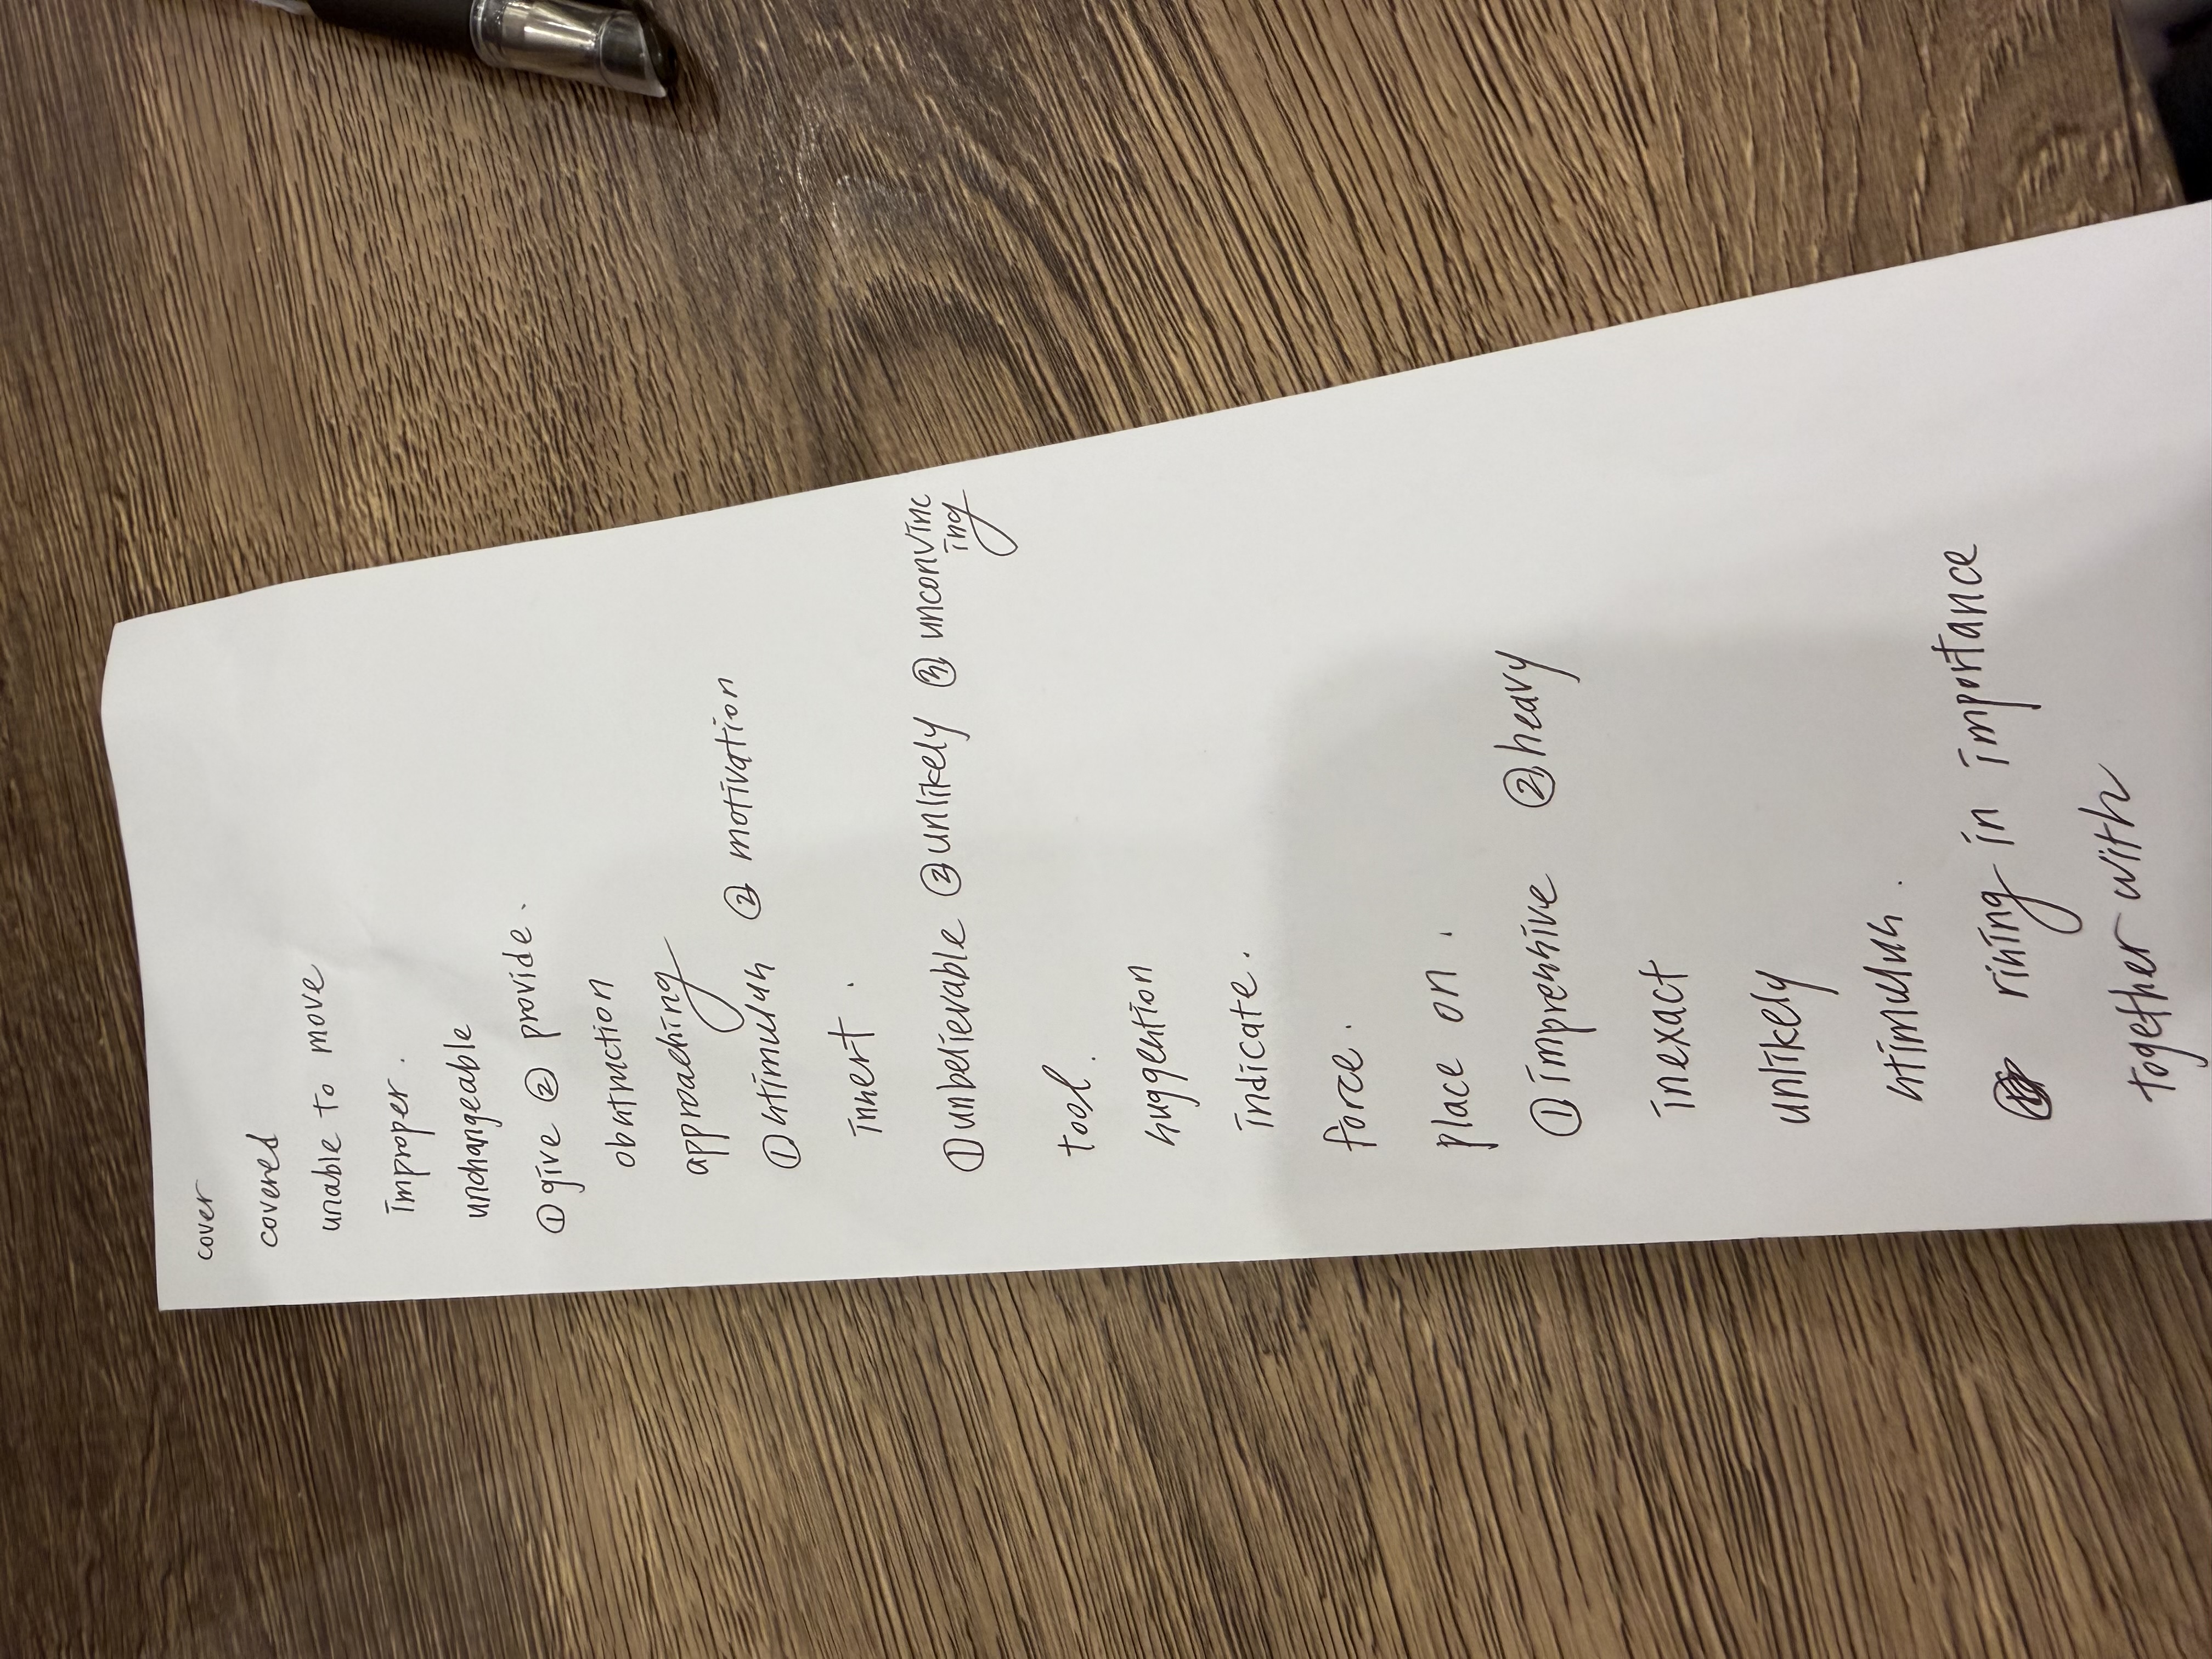 cover
covered
unable to move
improper.
unchangeable
① give ② provide.
obstruction
approaching
① stimulus ② motivation
insert.
① unbelievable ② unlikely ③ unconvinc
ing
tool.
suggestion
indicate.
force.
place on.
① impressive ② heavy
inexact
unlikely
stimulus.
rising in importance
together with